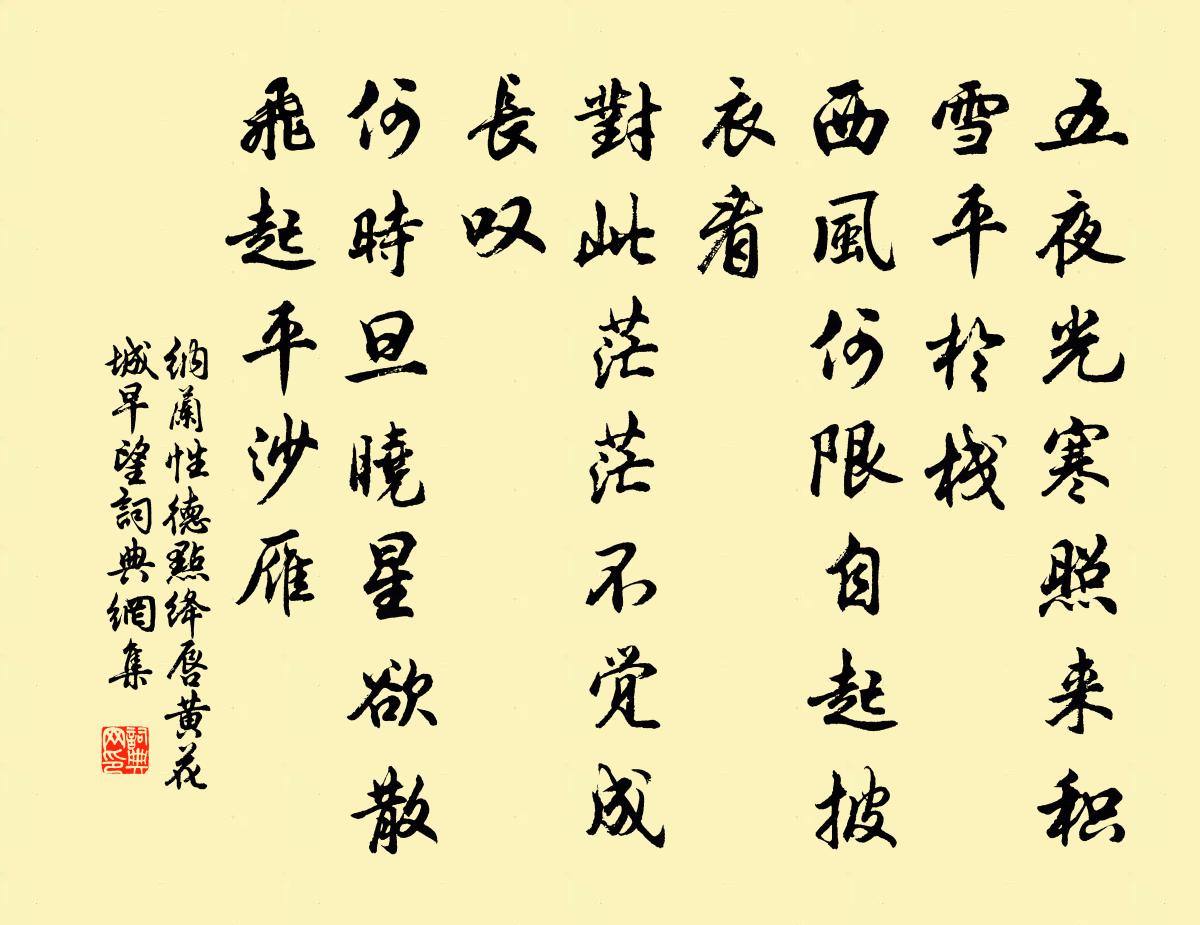 五夜光寒照来积
雪平於栈
西風何限自起披
衣看
對此茫茫不觉成
長叹
何時旦曉星欲散
飛起平沙雁
納蘭性德點絳唇黄花
城早望詞典網集
詞典
网印